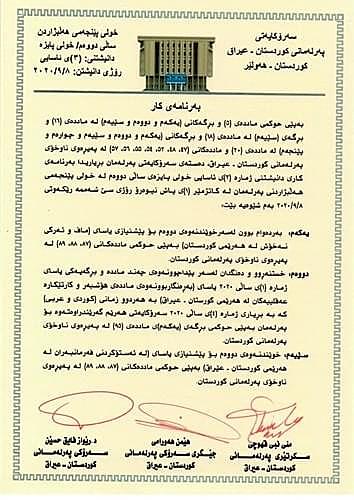 سەرۆکایەتی
پەرلەمانی کوردستان - عیراق
کوردستان - هەولێر
خولی پێنجەمی هەڵبژاردن
ساڵی دووەم/ خولی پایزە
دانیشتنی: (٣)ی ئاسایی
رۆژی دانیشتن: ٢٠٢٠/٩/٨
بەرنامەی کار
بەپێی حوکمی ماددەی (٥) و بڕگەکانی (یەکەم و دووەم و سێیەم) لە ماددەی (١٦) و
بڕگەی (سێیەم) لە ماددەی (١٨) و بڕگەکانی (یەکەم و دووەم و سێیەم و چوارەم و
پێنجەم) لە ماددەی (٢٠) و ماددەکانی (٤٧، ٤٨، ٥٢، ٥٤، ٥٥، ٥٦، ٥٧) لە پەیڕەوی ناوخۆی
پەرلەمانی کوردستان - عیراق، دەستەی سەرۆکایەتی پەرلەمان بڕیاریدا بەرنامەی
کاری دانیشتنی ژمارە (٣)ی ئاسایی خولی پایزەی ساڵی دووەم لە خولی پێنجەمی
هەڵبژاردنی پەرلەمان لە کاتژمێر (١)ی پاش نیوەڕۆ رۆژی سێ شەممە رێکەوتی
٢٠٢٠/٩/٨ بەم شێوەیە بێت:
یەکەم: بەردەوام بوون لەسەر خوێندنەوەی دووەم بۆ پێشنیازی یاسای (ماف و ئەرکی
نەخۆش لە هەرێمی کوردستان) بەپێی حوکمی ماددەکانی (٨٧، ٨٨، ٨٩) لە
پەیڕەوی ناوخۆی پەرلەمانی کوردستان.
دووەم: خستنەڕوو و دەنگدان لەسەر پێداچوونەوەی چەند ماددە و بڕگەیەکی یاسای
ژمارە (١)ی ساڵی ٢٠٢٠ یاسای (بەرەنگاربوونەوەی هۆشبەر و کارتێکارە
عەقڵییەکان لە هەرێمی کوردستان - عیراق) بە هەردوو زمانی (کوردی و عەرەبی)
کە بە بڕیاری ژمارە (٤)ی ساڵی ٢٠٢٠ سەرۆکایەتی هەرێم گەڕێندراوەتەوە بۆ
پەرلەمان بەپێی حوکمی بڕگەی (یەکەم)ی ماددەی (٩٥) لە پەیڕەوی ناوخۆی
پەرلەمانی کوردستان.
سێیەم: خوێندنەوەی دووەم بۆ پێشنیازی یاسای (لە ئەستۆکردنی فەرمانبەران لە
هەرێمی کوردستان - عێراق) بەپێی حوکمی ماددەکانی (٨٧، ٨٨، ٨٩) لە پەیڕەوی
ناوخۆی پەرلەمانی کوردستان.
منی نبی قهوچی
سکرتێری پەرلەمانی
کوردستان - عیراق
هێمن هەورامی
جێگری سەرۆکی پەرلەمانی
کوردستان - عیراق
د. رێواز فایق حسێن
سەرۆکی پەرلەمانی
کوردستان - عیراق